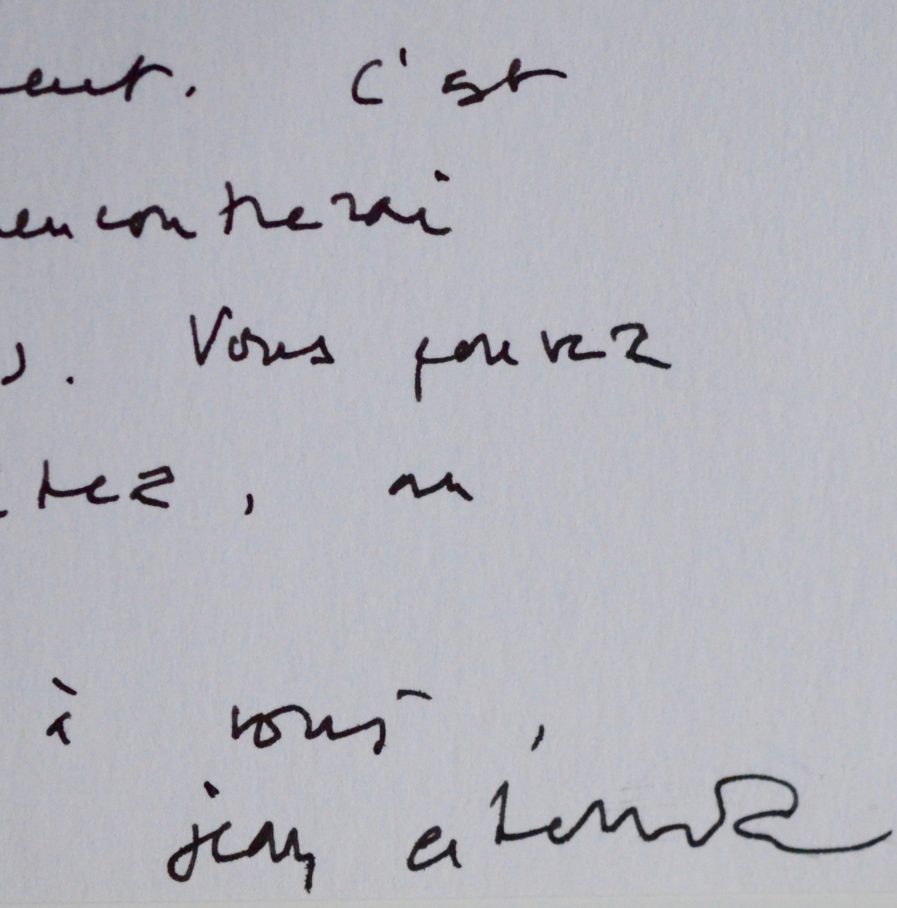 c'est
rencontrerai
. Vous pouvez
tez, au
à vous,
jean